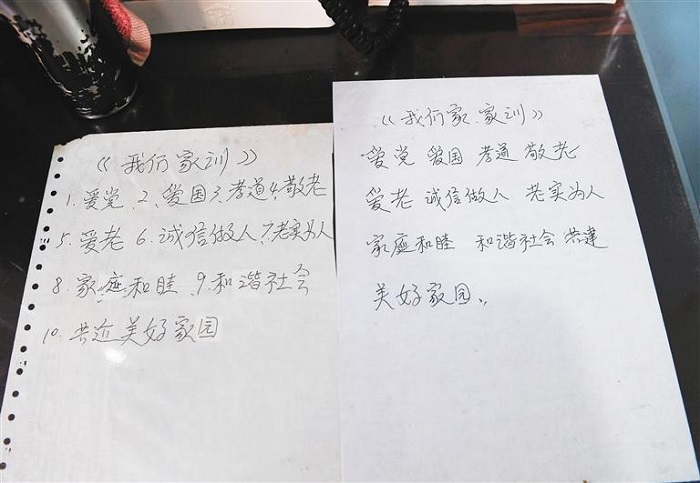 《我们家训》
1.爱党、2、爱国3、孝道4、敬老
5、爱老 6.诚信做人7.老实为人
8、家庭和睦、9.和谐社会
10.共近美好家园
《我们家.家训》
爱党 爱国 孝道 敬老
爱老 诚信做人 老实为人
家庭和睦 和谐社会 共建
美好家园。